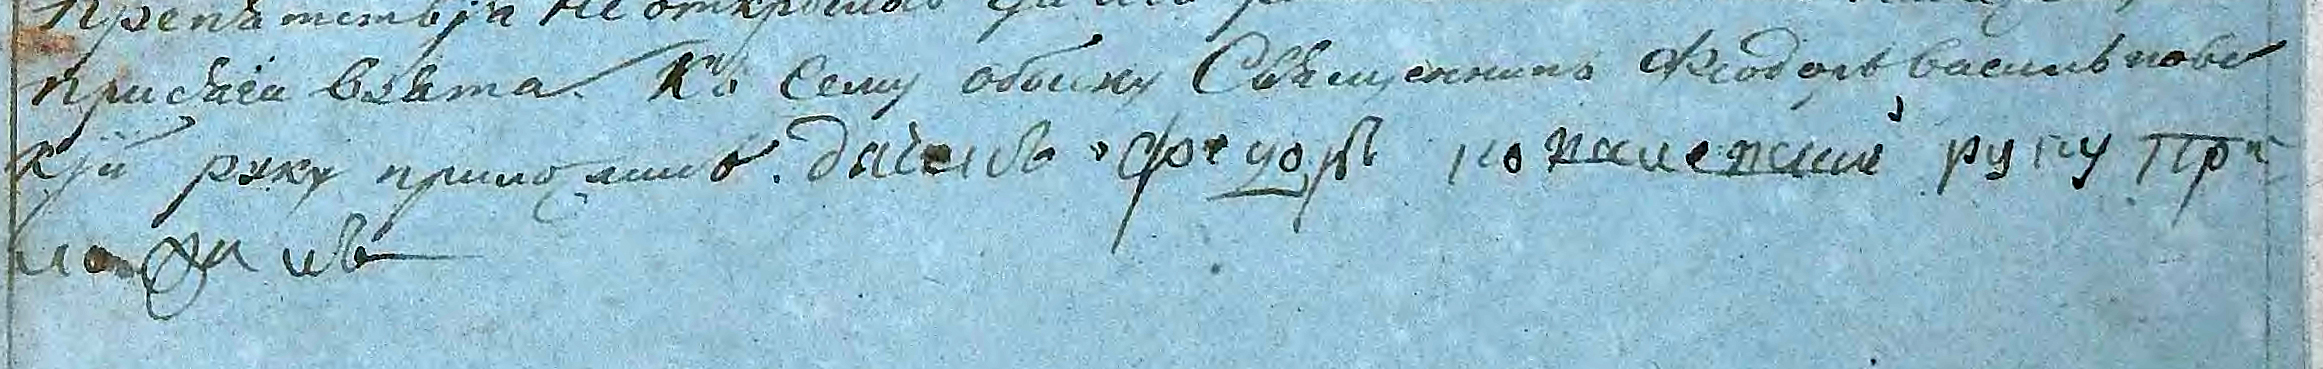 Препятствїя не открылось
присяга взята. Къ сему обыску Священникъ Феодоръ Васильковс
кїй руку приложилъ. дьячекъ федоръ руку при
ложилъ